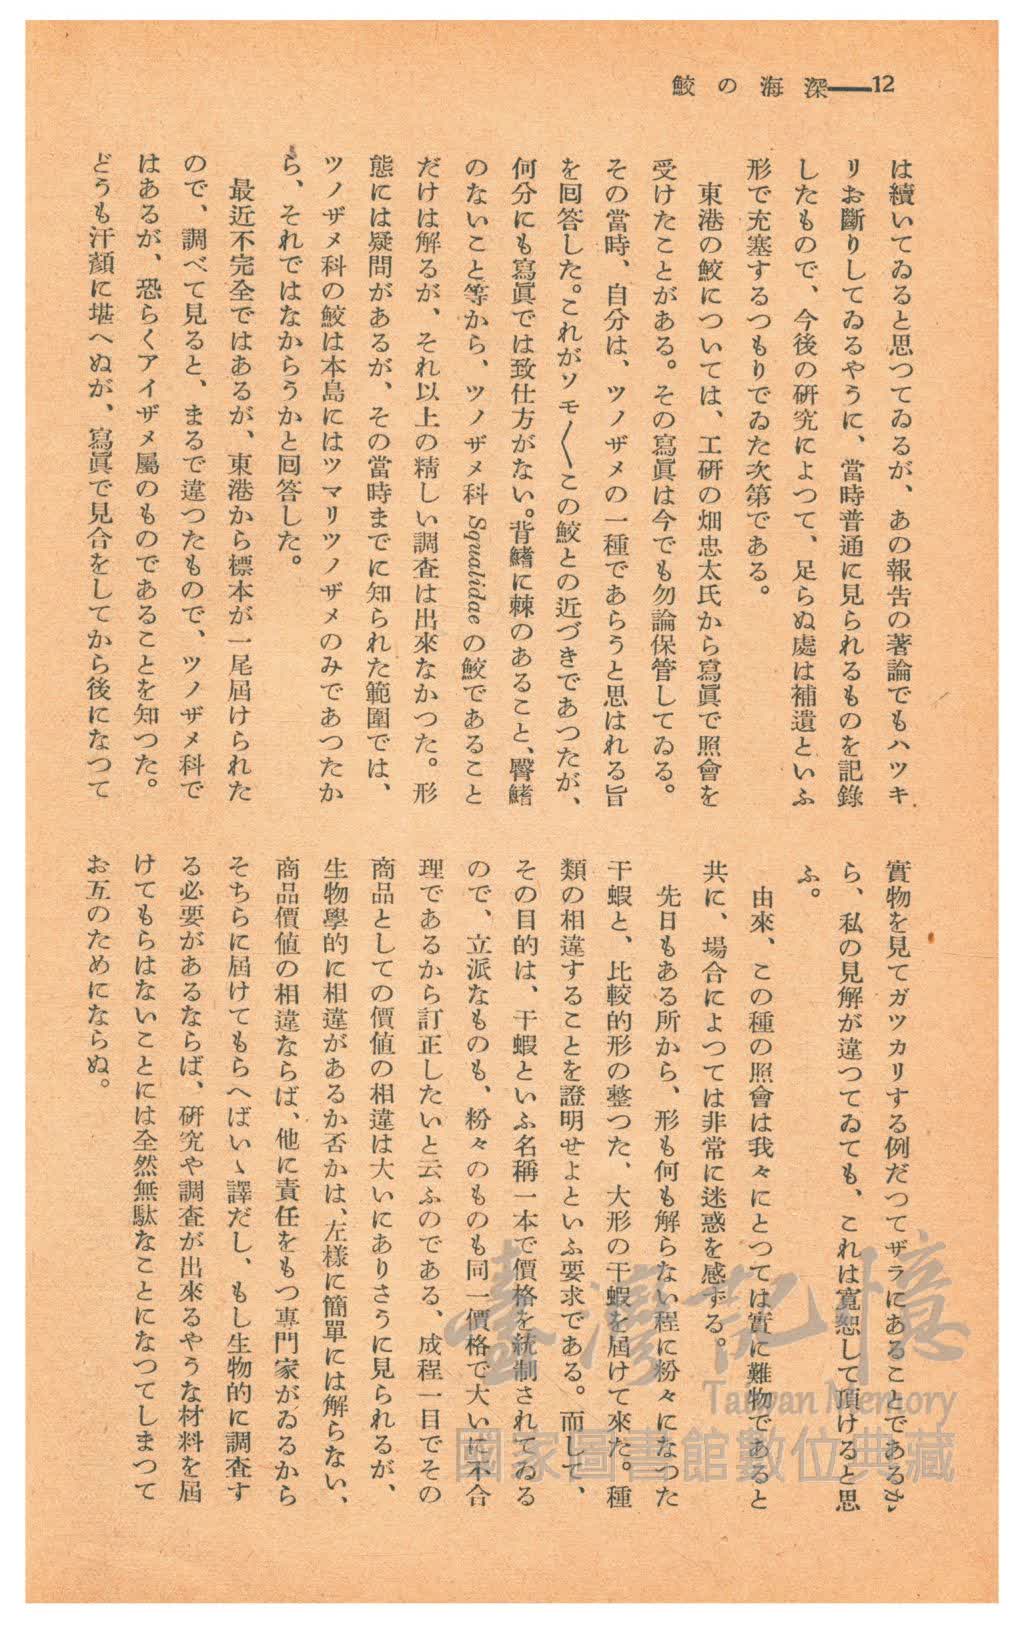 12——深海の鮫
は續いてゐると思つてゐるが、あの報告の著論でもハツキ
リお斷りしてゐるやうに、當時普通に見られるものを記錄
したもので、今後の硏究によつて、足らぬ處は補遺といふ
形で充塞するつもりでゐた次第である。
東港の鮫については、工硏の畑忠太氏から寫眞で照會を
受けたことがある。その寫眞は今でも勿論保管してゐる。
その當時、自分は、ツノザメの一種であらうと思はれる旨
を囘答した。これがソモ〳〵この鮫との近づきであつたが、
何分にも寫眞では致仕方がない。背鰭に棘のあること、臀鰭
のないこと等から、ツノザメ科 Squalidae の鮫であること
だけは解るが、それ以上の精しい調査は出來なかつた。形
態には疑問があるが、その當時までに知られた範圍では、
ツノザメ科の鮫は本島にはツマリツノザメのみであつたか
ら、それではなからうかと囘答した。
最近不完全ではあるが、東港から標本が一尾屆けられた
ので、調べて見ると、まるで違つたもので、ツノザメ科で
はあるが、恐らくアイザメ屬のものであることを知つた。
どうも汗顏に堪へぬが、寫眞で見合をしてから後になつて
實物を見てガツカリする例だつてザラにあることであるか
ら、私の見解が違つてゐても、これは寬恕して頂けると思
ふ。
由來、この種の照會は我々にとつては實に難物であると
共に、場合によつては非常に迷惑を感ずる。
先日もある所から、形も何も解らない程に粉々になつた
干蝦と、比較的形の整つた、大形の干蝦を屆けて來た。種
類の相違することを證明せよといふ要求である。而して、
その目的は、干蝦といふ名稱一本で價格を統制されてゐる
ので、立派なものも、粉々のものも同一價格で大いに不合
理であるから訂正したいと云ふのである、成程一目でその
商品としての價値の相違は大いにありさうに見られるが、
生物學的に相違があるか否かは、左樣に簡單には解らない、
商品價値の相違ならば、他に責任をもつ專門家がゐるから
そちらに屆けてもらへばいゝ譯だし、もし生物的に調査す
る必要があるならば、硏究や調査が出來るやうな材料を屆
けてもらはないことには全然無駄なことになつてしまつて
お互のためにならぬ。
臺灣記憶
Taiwan Memory
國家圖書館數位典藏